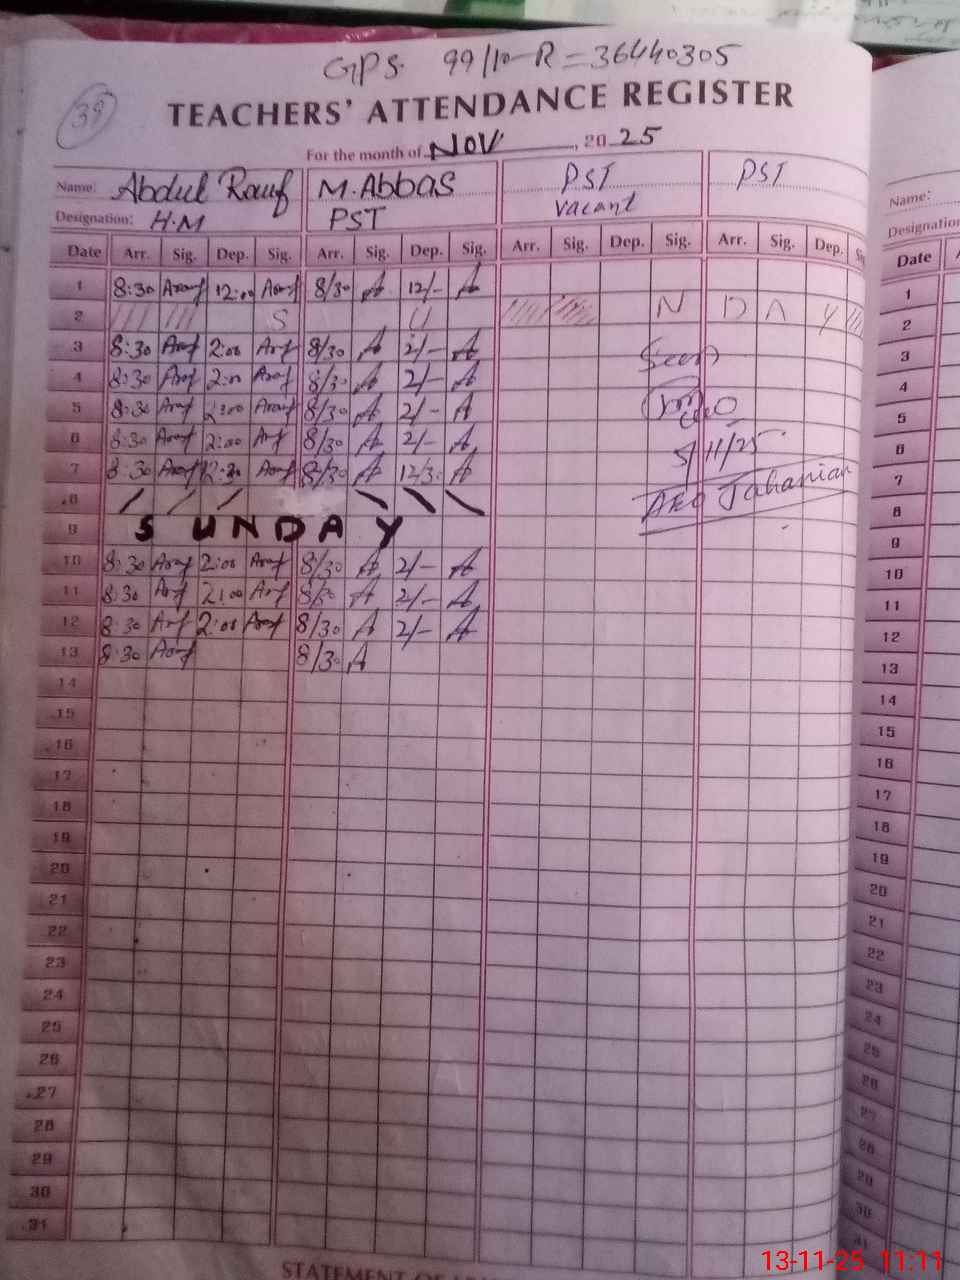 GPS. 99/10-R = 36440305
39
TEACHERS' ATTENDANCE REGISTER
For the month of NOV, 2025
Name: Abdul Rauf M. Abbas PST PST
Designation: H.M PST Vacant
Date Arr. Sig. Dep. Sig. Arr. Sig. Dep. Sig. Arr. Sig. Dep. Sig. Arr. Sig. Dep.
1 8:30 12:00 8/30 A 12/- A
2 S U N D A Y
3 8:30 2:00 8/30 A 2/- A
Seen
4 8:30 2:00 8/30 A 2/- A
5 8:30 2:00 8/30 A 2/- A
6 8:30 2:00 8/30 A 2/- A
5/11/25
7 8:30 12:30 8/30 A 12/30 A
AEO Jahanian
8
9 SUNDAY
10 8:30 2:00 8/30 A 2/- A
11 8:30 2:00 8/30 A 2/- A
12 8:30 2:00 8/30 A 2/- A
13 8:30 8/30 A
14
15
16
17
18
19
20
21
22
23
24
25
26
27
28
29
30
31
STATEMENT OF
Name:
Designation
Date
1
2
3
4
5
6
7
8
9
10
11
12
13
14
15
16
17
18
19
20
21
22
23
24
25
26
27
28
29
30
31
13-11-25 11:11